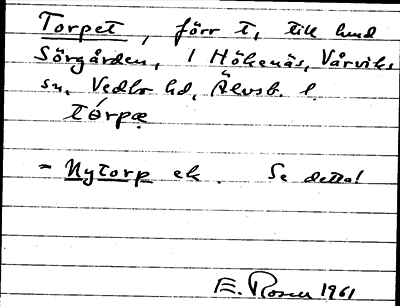 Torpet, förr t, till hmd
Sörgården, 1 Höhenäs, Vårviks
sn, Vedbo hd, Älvsb. l.
tórpæ
= Nytorp ek. Se detta!
E. Rosen 1961